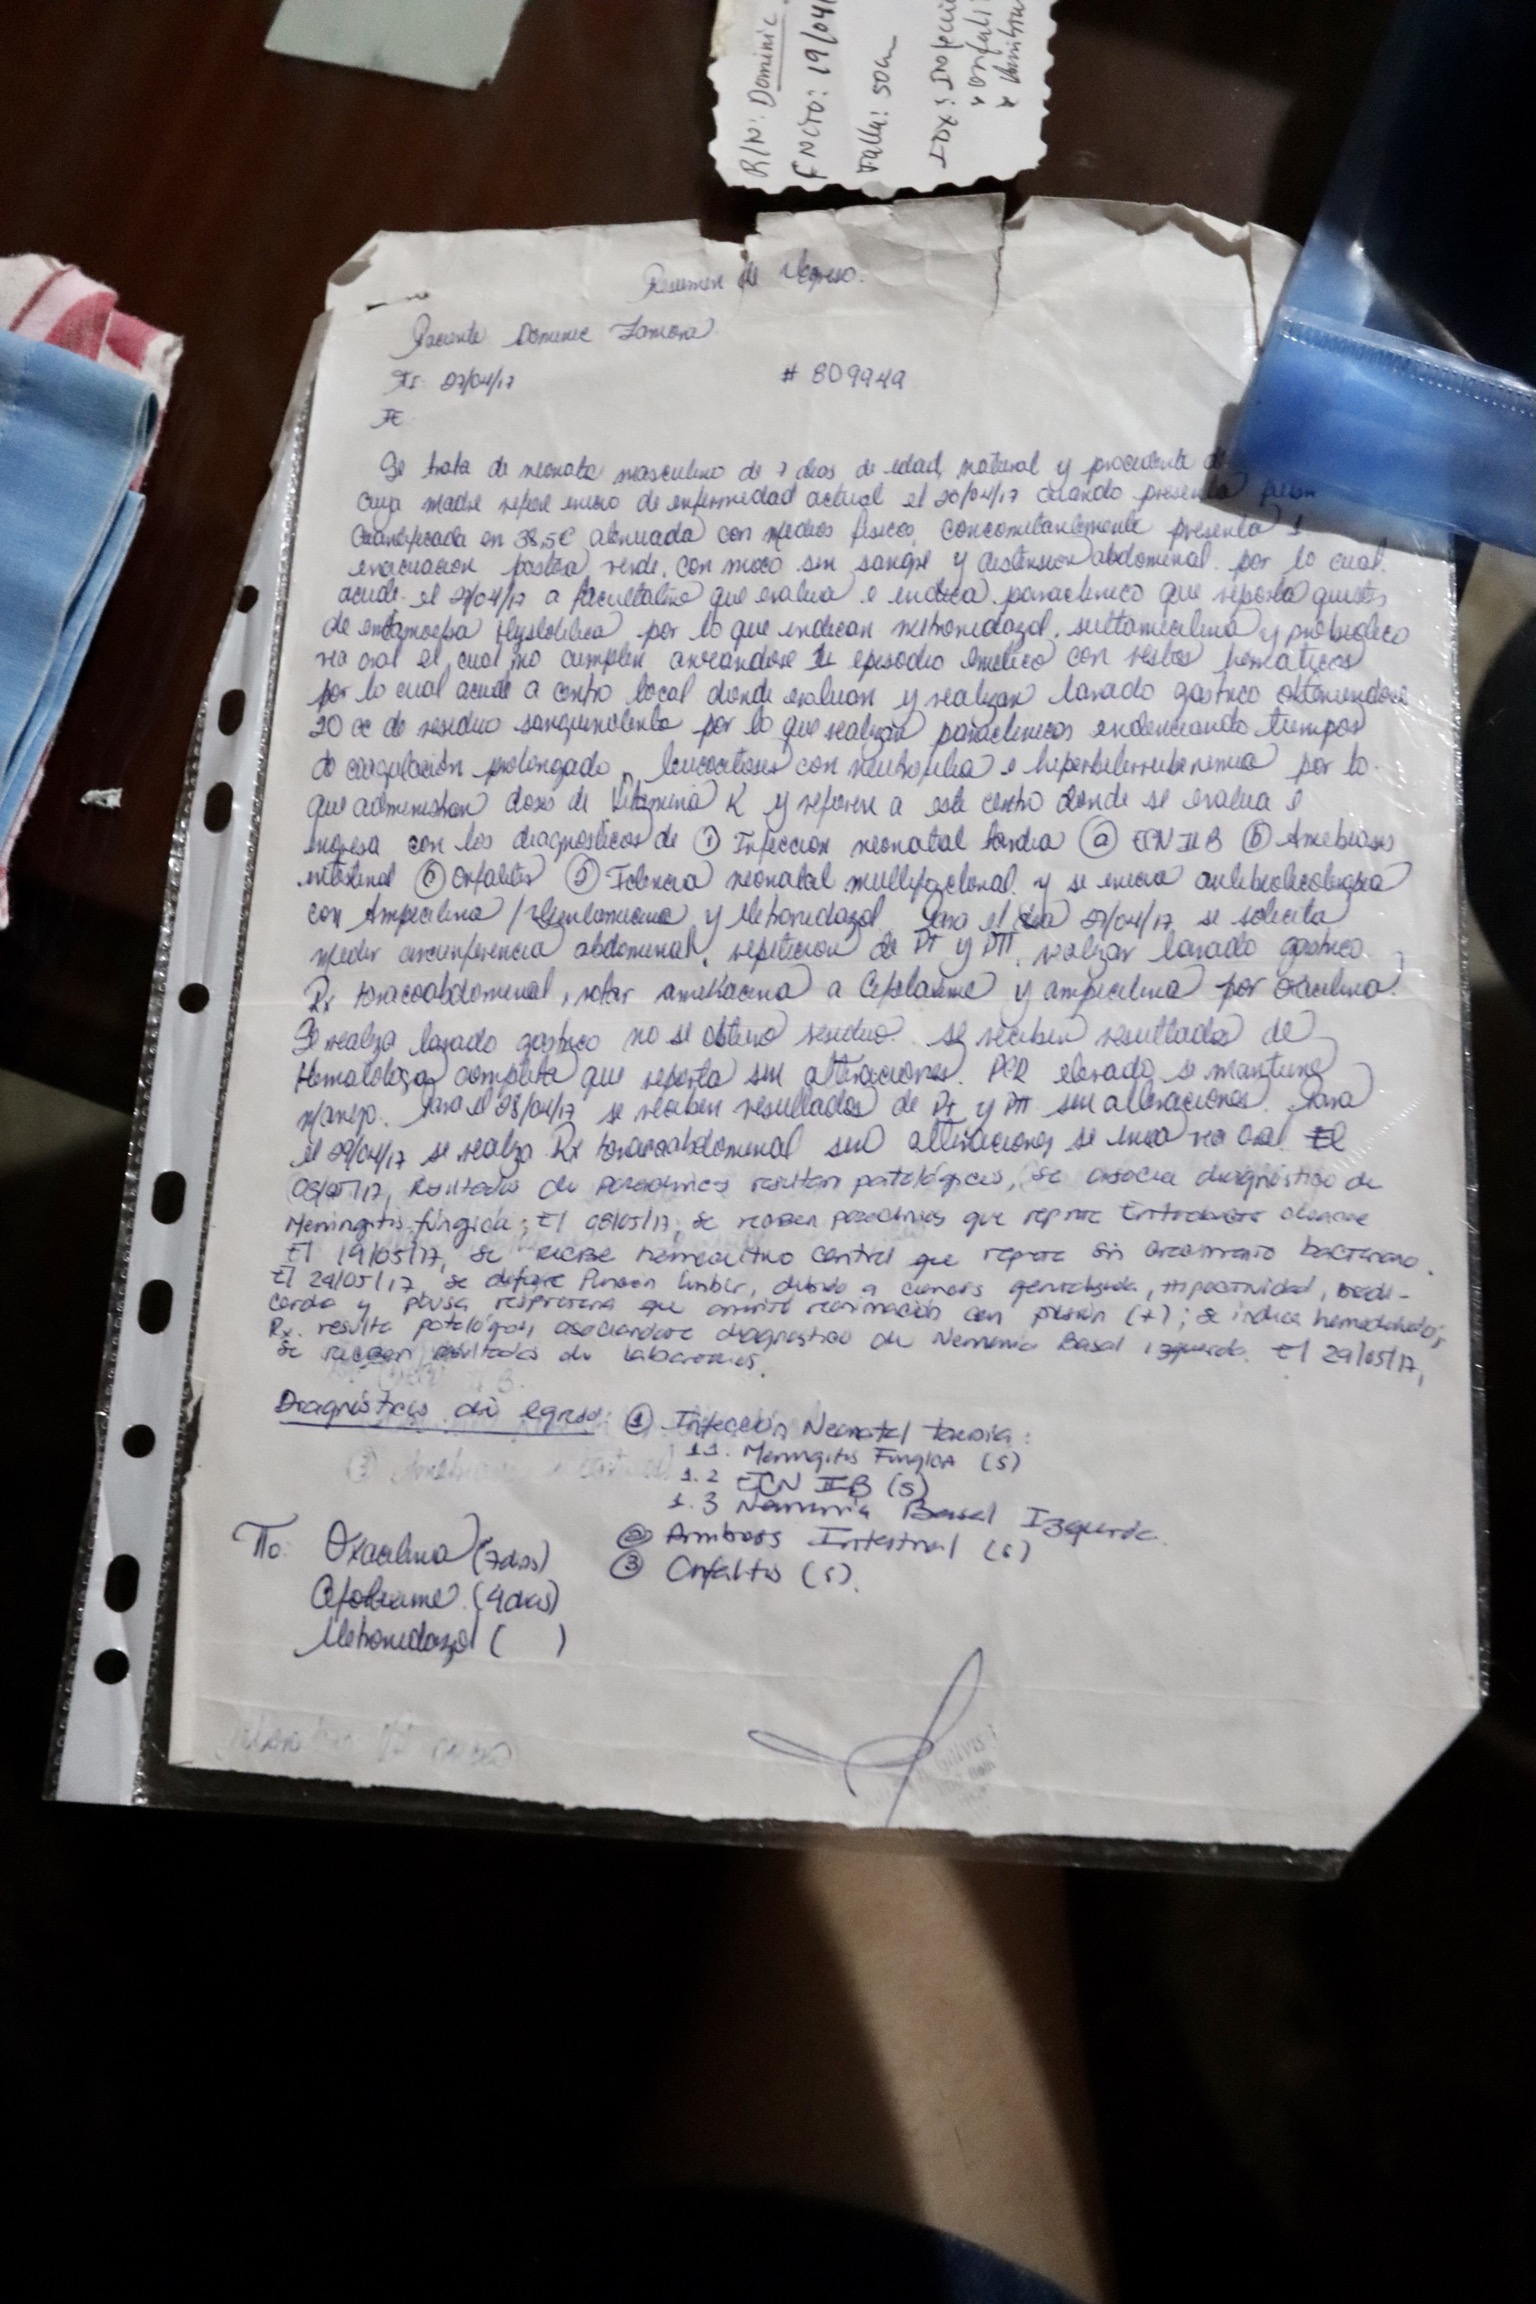 R/N: Dominic
FNCTO: 19/04/
Talla: 50cm
IDX: Infecci
* Onfali
*
Resumen de Egreso.
Paciente Dominic Zamora
FI: 27/04/17 # 809949
FE:
Se trata de neonato masculino de 7 dias de edad, natural y procedente de
cuya madre refiere inicio de enfermedad actual el 20/04/17 cuando presenta
cuantificada en 38,5C atenuada con medios fisicos, concomitantemente presenta 1
evacuacion pastosa verde, con moco sin sangre y distension abdominal por lo cual
acude el 27/04/17 a facultativo que evalua e indica paraclinico que reporta quistes
de entamoeba Hystolitica por lo que indican metronidazol, sultamicilina y probiotico
via oral el cual no cumplen, episodio emetico con restos hematicos
por lo cual acude a centro local donde evaluan y realizan lavado gastrico obteniendose
20 cc de residuo sanguinolento por lo que realizan paraclinicos evidenciando tiempos
de coagulación prolongado, leucocitosis con neutrofilia e hiperbilirrubinemia por lo
que administran dosis de Vitamina K y refieren a este centro donde se evalua e
ingresa con los diagnosticos de ① Infeccion neonatal tardia ⓐ ECN II B ⓑ Amebiasis
intestinal ⓒ Onfalitis ② Ictericia neonatal multifactorial y se inicia antibioticoterapia
con Ampicilina / y Metronidazol. Para el dia 27/04/17 se solicita
medir circunferencia abdominal, repeticion de PT y PTT, realizar lavado gastrico
Rx toracoabdominal, rotar amikacina a Cefotaxime y ampicilina por oxacilina.
Se realiza lavado gastrico no se obtuvo residuo. se reciben resultados de
Hematologia completa que reporta sin alteraciones. PCR elevado se mantiene
manejo. Para el 28/04/17 se reciben resultados de PT y PTT sin alteraciones. Para
el 29/04/17 se realiza Rx toracoabdominal sin alteraciones se inicia via oral. El
/05/17, Resultados de paraclinicos resultan patológicos, se asocia diagnóstico de
Meningitis fúngica; El 08/05/17, se reciben paraclinicos que reporta
El 19/05/17, se recibe hemocultivo control que reporta sin crecimiento bacteriano.
El 24/05/17, se difiere Puncion lumbar, debido a cianosis generalizada, Hipoactividad, bradi-
cardia y pausa respiratoria que amerito reanimación con presión (+); se indica
Rx. resulta patológica, asociandose diagnostico de Neumonia Basal Izquierda. El 29/05/17,
se reciben resultados de laboratorios.
Diagnósticos de egreso: ① Infección Neonatal tardia:
1.1. Meningitis Fungica (S)
1.2 ECN IIB (S)
1.3 Neumonia Basal Izquierda.
② Amibiasis Intestinal (S)
③ Onfalitis (S).
Tto: Oxacilina (7dias)
Cefotaxime (4dias)
Metronidazol ( )